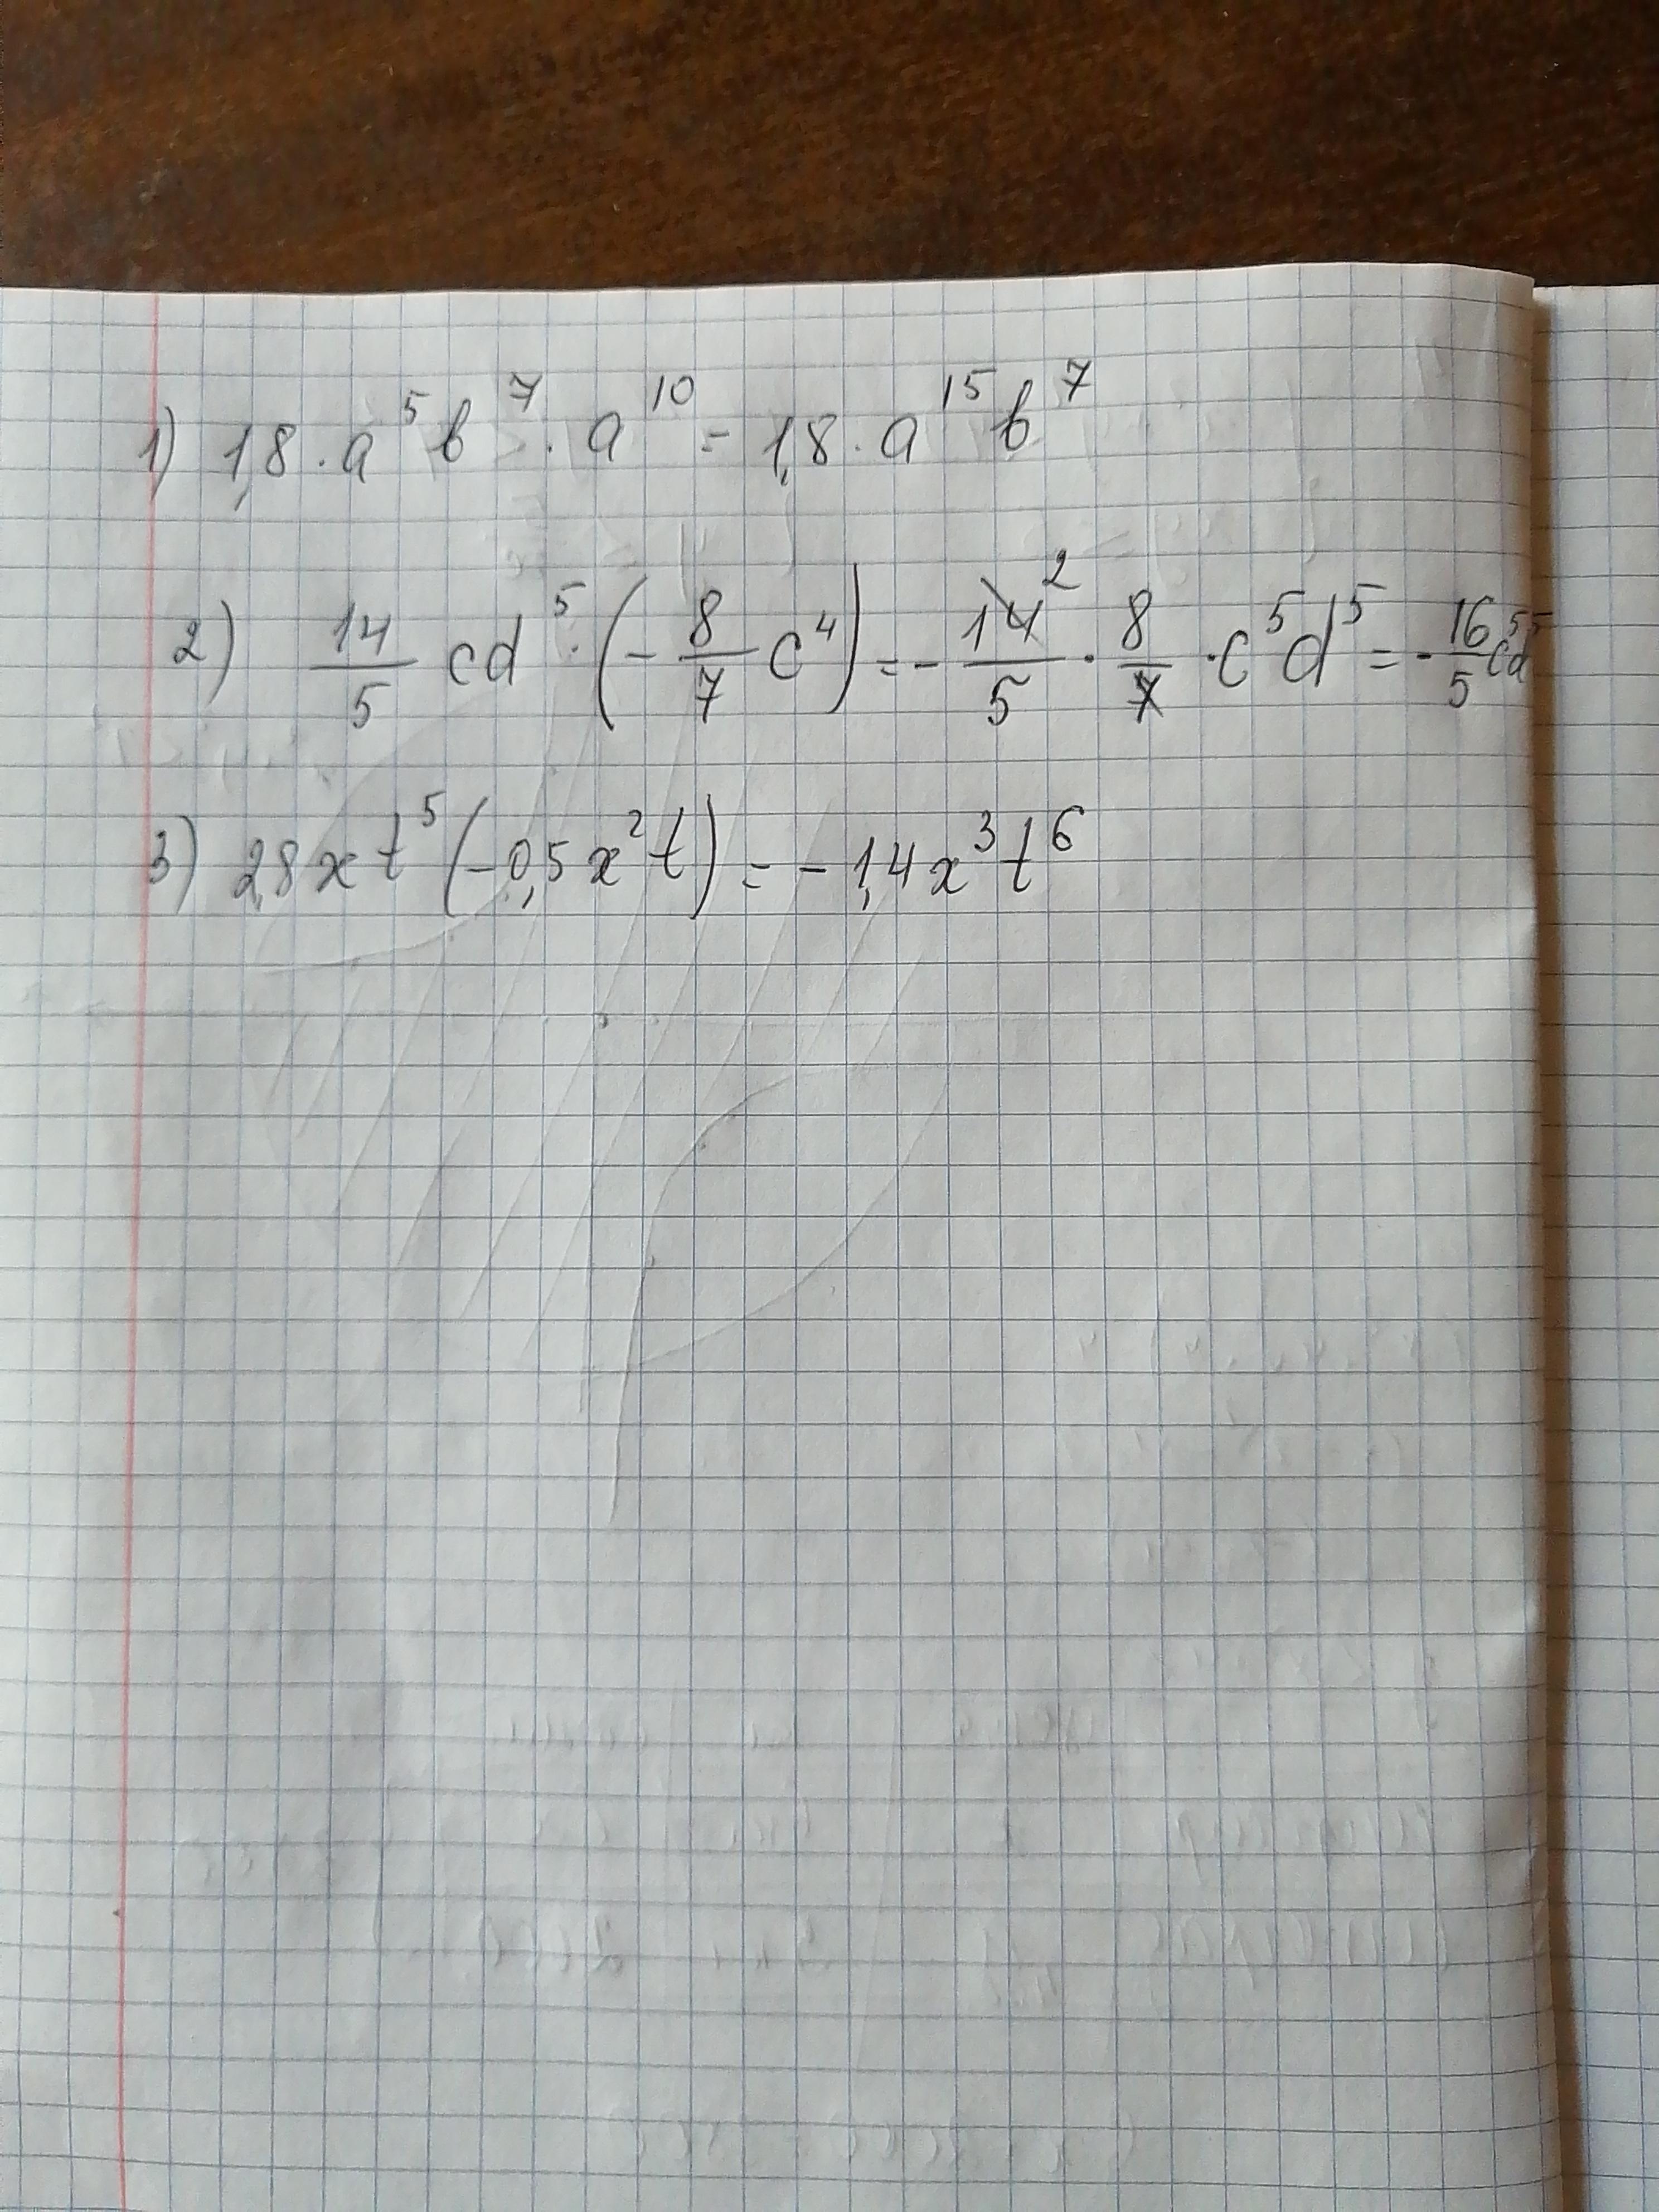 1) 1,8 · a⁵b⁷ · a¹⁰ = 1,8 · a¹⁵b⁷
2) 14/5 cd⁵ · (- 8/7 c⁴) = - 14²/5 · 8/7 · c⁵d⁵ = - 16/5 c⁵d⁵
3) 2,8xt⁵(-0,5x²t) = -1,4x³t⁶